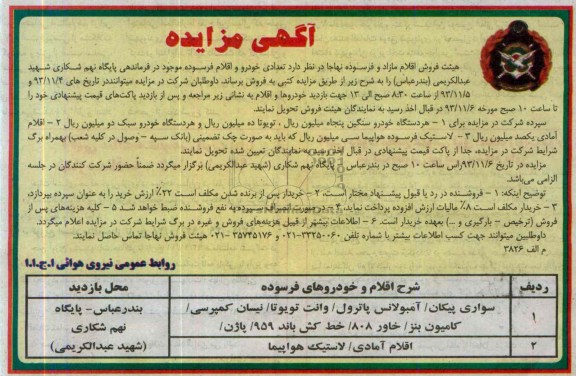 آگهی مزایده
هیئت فروش اقلام مازاد و فرسوده نهاجا در نظر دارد تعدادی خودرو و اقلام فرسوده موجود در فرماندهی پایگاه نهم شکاری شهید
عبدالکریمی (بندرعباس) را به شرح زیر از طریق مزایده کتبی به فروش برساند. داوطلبان شرکت در مزایده میتواننددر تاریخ های ۹۳/۱۱/۴ و
۹۳/۱۱/۵ از ساعت ۸:۳۰ صبح الی ۱۳ جهت بازدید خودروها و اقلام به نشانی زیر مراجعه و پس از بازدید پاکت‌های قیمت پیشنهادی خود را
تا ساعت ۱۰ صبح مورخه ۹۳/۱۱/۶ در قبال اخذ رسید به نمایندگان هیئت فروش تحویل نمایند.
سپرده شرکت در مزایده برای ۱ - هردستگاه خودرو سنگین پنجاه میلیون ریال ، تویوتا ده میلیون ریال و هردستگاه خودرو سبک دو میلیون ریال ۲ - اقلام
آمادی یکصد میلیون ریال ۳ - لاستیک فرسوده هواپیما سی میلیون ریال که باید به صورت چک تضمینی (بانک سپه - وصول در کلیه شعب) بهمراه برگ
شرایط شرکت در مزایده، جدا از پاکت قیمت پیشنهادی در قبال اخذ رسید به نمایندگان تعیین شده تحویل نمایند.
مزایده در تاریخ ۹۳/۱۱/۶راس ساعت ۱۰ صبح در بندرعباس - پایگاه نهم شکاری (شهید عبدالکریمی) برگزار میگردد ضمناً حضور شرکت کنندگان در جلسه
الزامی می‌باشد.
توضیح اینکه: ۱ - فروشنده در رد یا قبول پیشنهاد مختار است. ۲ - خریدار پس از برنده شدن مکلف است ۲۲٪ ارزش خرید را به عنوان سپرده بپردازد.
۳ - خریدار مکلف است ۸٪ مالیات ارزش افزوده پرداخت نماید. ۴ - در صورت انصراف سپرده به نفع فروشنده ضبط خواهد شد ۵ - کلیه هزینه‌های پس از
فروش (ترخیص - بارگیری و ...) بعهده خریدار است. ۶ - اطلاعات بیشتر از قبیل هزینه‌های فروش و غیره در برگ شرایط شرکت در مزایده اعلام میگردد.
داوطلبین میتوانند جهت کسب اطلاعات بیشتر با شماره تلفن ۳۳۲۵۰۰۶۰-۰۲۱ و ۳۵۷۴۵۱۷۶ -۰۲۱ هیئت فروش نهاجا تماس حاصل نمایند.
م الف ۳۸۲۶
روابط عمومی نیروی هوائی ا.ج.ا.ا
ردیف شرح اقلام و خودروهای فرسوده محل بازدید
۱ سواری پیکان/ آمبولانس پاترول/ وانت تویوتا/ نیسان کمپرسی/
کامیون بنز/ خاور ۸۰۸/ خط کش باند ۹۵۹/ پاژن/
۲ اقلام آمادی/ لاستیک هواپیما
بندرعباس- پایگاه
نهم شکاری
(شهید عبدالکریمی)